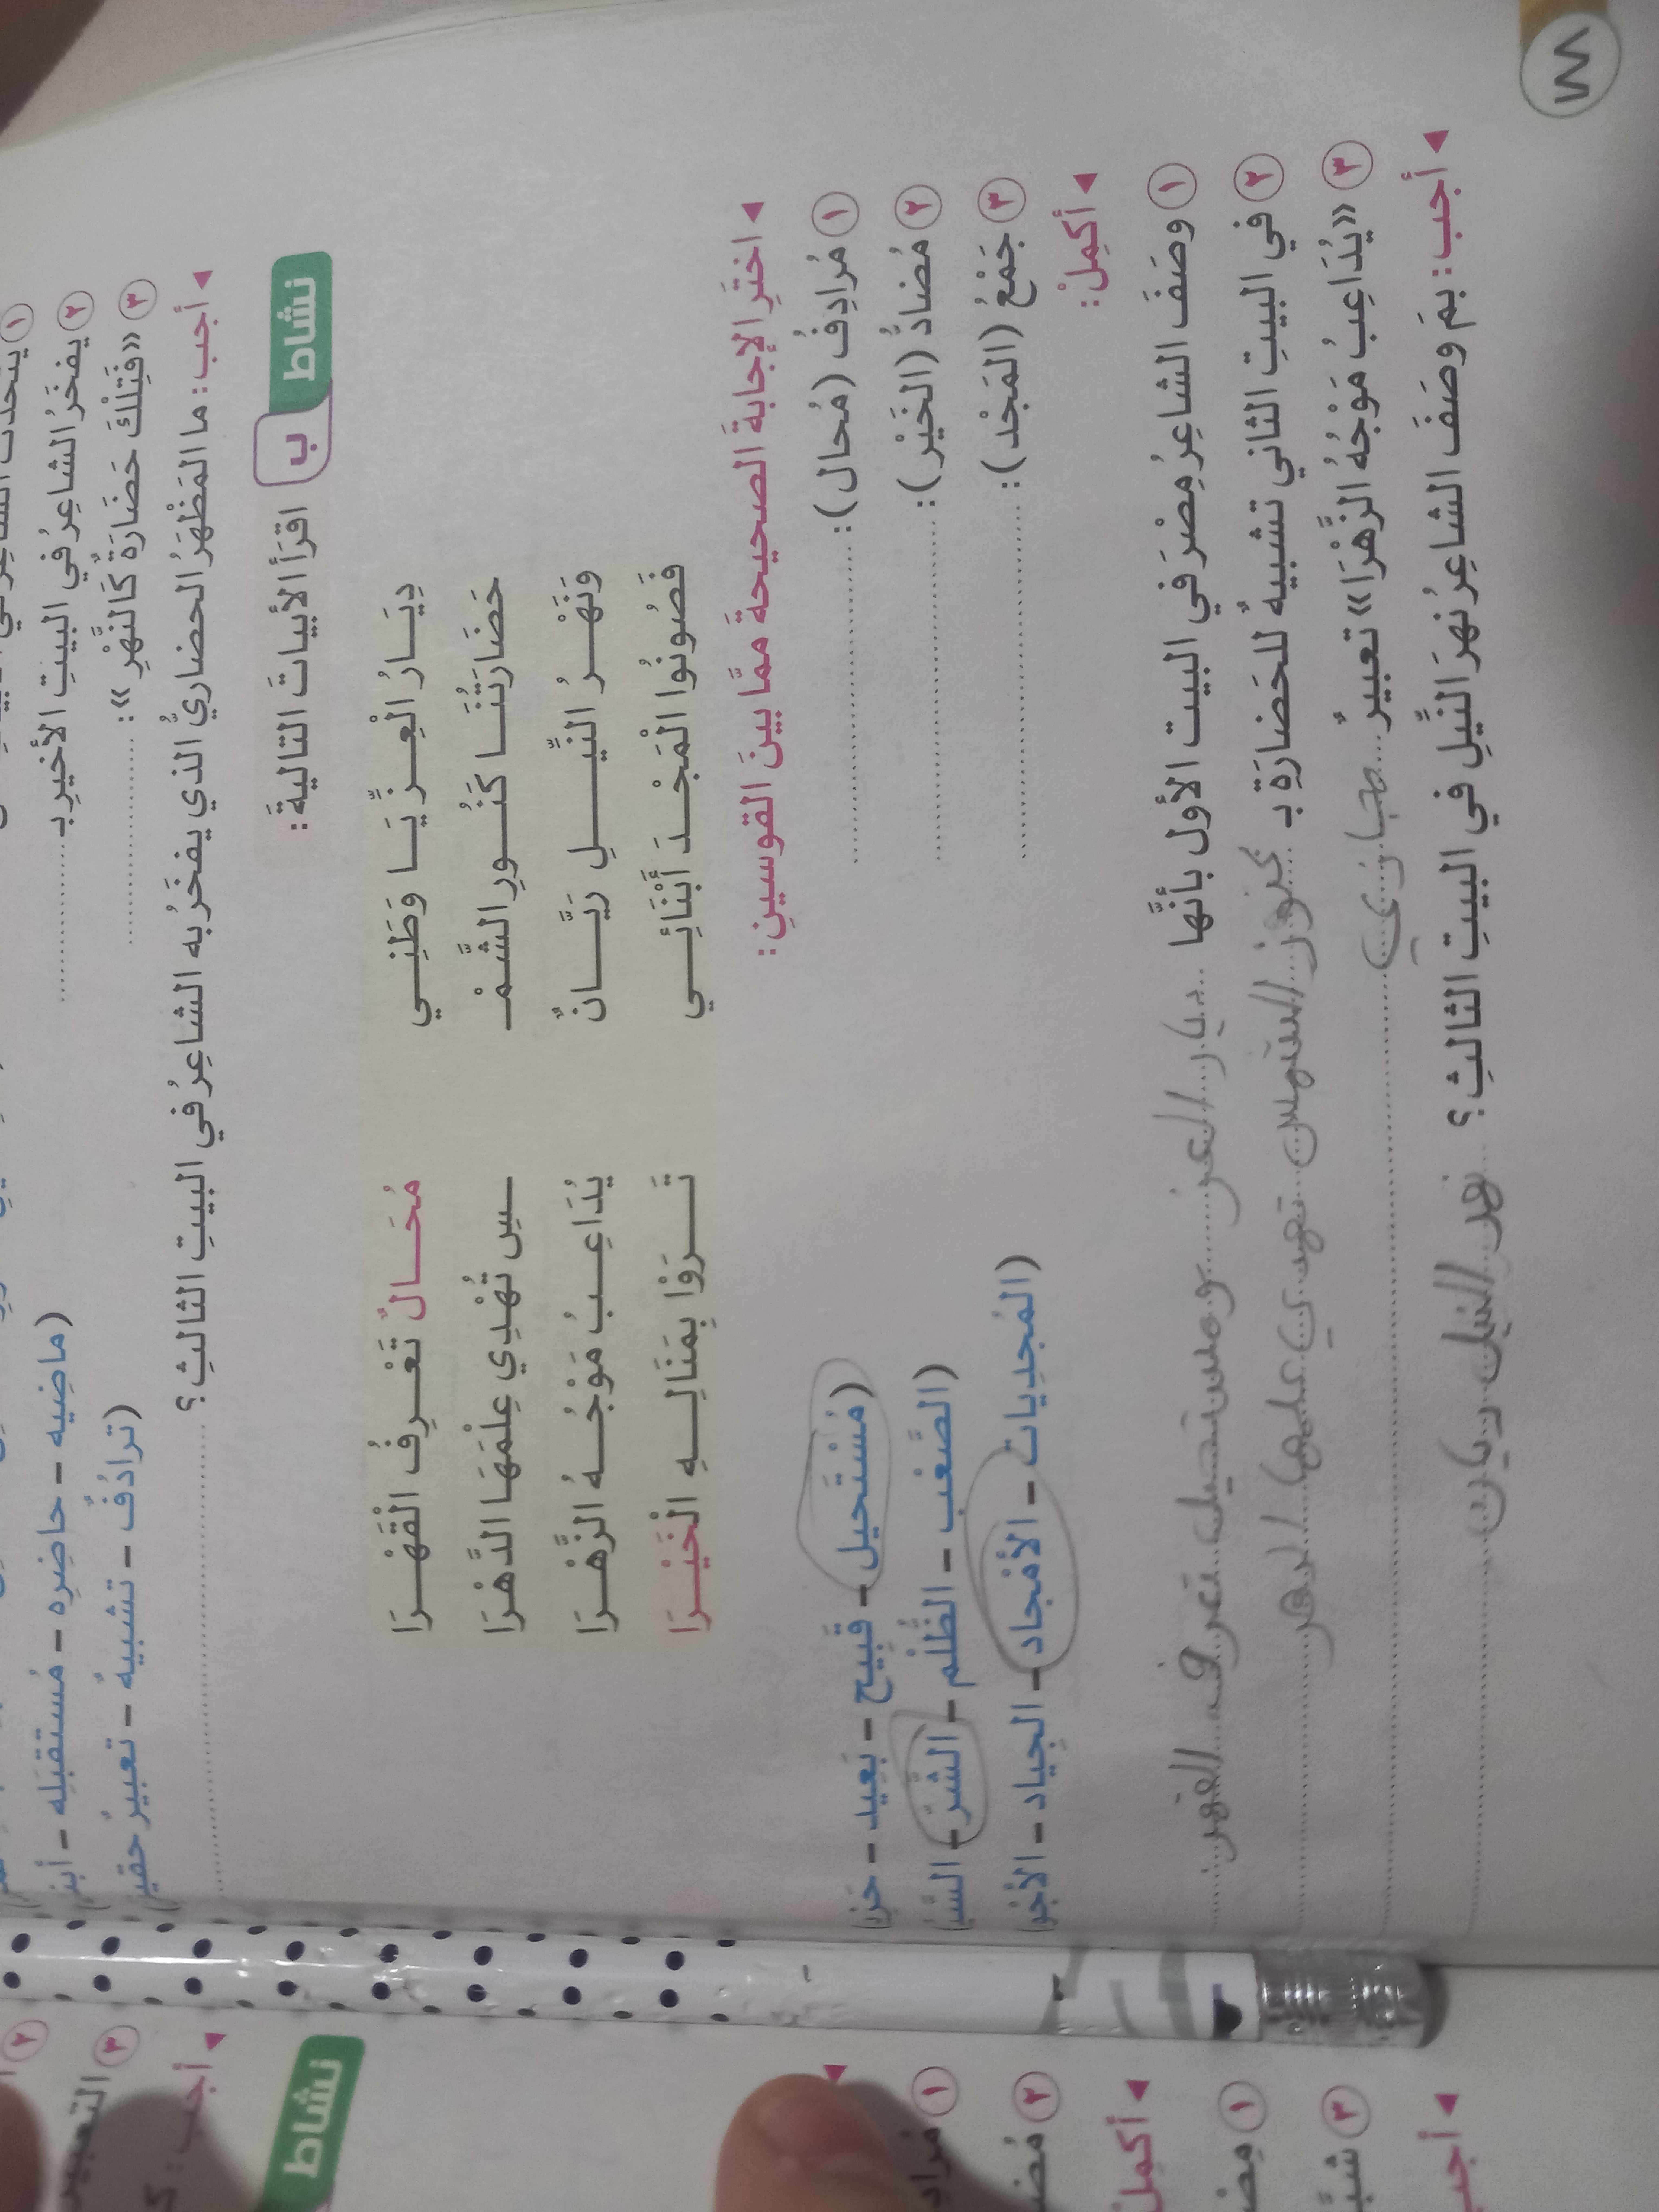 يفخَرُ الشاعِرُ في البيتِ الأخيرِ بـ (ماضِيه - حاضِرِه - مُستقبَلِه -
٣ «فَتِلْكَ حَضَارَةٌ كَالنَّهْرِ»: (ترادُفٌ - تشبيهٌ - تعبيرٌ
◄ أجب: ما المَظْهَرُ الحضاريُّ الذي يفخَرُ به الشاعِرُ في البيتِ الثالثِ؟
نشاط ب اقرَأ الأبياتَ التاليةَ:
دِيَـــارُ الْعِـــزِّ يَـــا وَطَنِـــي مُحَـــالٌ تَعْـــرِفُ الْقَهْـــرَا
حَضَارَتُنَـــا كَنُـــورِ الشَّـمْـ ـــسِ تُهْدِي عِلْمَهَا الدَّهْرَا
وَنَهْـــرُ النِّيـــلِ رَيَّـــانٌ يُدَاعِـــبُ مَوْجُـــهُ الزَّهْـــرَا
فَصُونُوا الْمَجْـــدَ أَبْنَائِـــي تَـــرَوْا بِمَنَالِـــهِ الْخَيْـــرَا
◄ اختَرِ الإجابةَ الصحيحةَ ممَّا بينَ القوسينِ:
١ مُرادِفُ (مُحال): (مُسْتَحيل - قَبيح - بَعِيد -
٢ مُضادُّ (الخَيْر): (الصَّعْب - الظُّلْم - الشَّرّ -
٣ جَمْعُ (المَجْد): (المُجدِيات - الأمْجاد - الجِياد -
◄ أكمِلْ:
١ وصَفَ الشاعِرُ مِصْرَ في البيت الأول بأنَّها ديار العز ومستحيل تعرف القهر
٢ في البيتِ الثاني تشبيهٌ للحَضارَةِ بـ كنور الشمس تهدي علمها الدهر
٣ «يُدَاعِبُ مَوْجُهُ الزَّهْرَا» تعبيرٌ مجازي
◄ أجب: بمَ وصَفَ الشاعِرُ نهرَ النِّيلِ في البيتِ الثالثِ؟ نهر النيل ريان
١٨٨
نشاط
١ مُرادِ
٢ مُضـ
◄ أكمِلْ
١ مِصْـ
٣ شبَّـ
◄ أجب